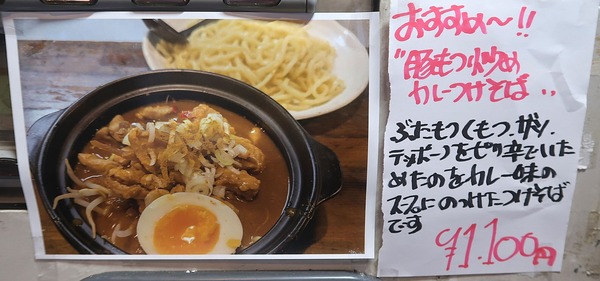 おすすめ〜!!
"豚もつ炒め
カレーつけそば"
ぶたもつ(もつ、ガツ、
テッポー)をピリ辛でいた
めたのをカレー味の
スープにのっけたつけそば
です
¥1.100円